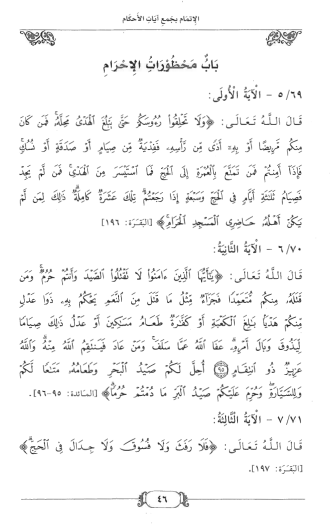 الإتمام بجمع آيات الأحكام
بَابُ مَحْظُورَاتِ الإِحْرَامِ
٥/٦٩ - الآيَةُ الأُولَى:
قَالَ اللَّهُ تَعَالَى: ﴿وَلَا تَحْلِقُوا رُءُوسَكُمْ حَتَّى يَبْلُغَ الْهَدْيُ مَحِلَّهُ فَمَن كَانَ
مِنكُم مَّرِيضًا أَوْ بِهِ أَذًى مِّن رَّأْسِهِ فَفِدْيَةٌ مِّن صِيَامٍ أَوْ صَدَقَةٍ أَوْ نُسُكٍ
فَإِذَا أَمِنتُمْ فَمَن تَمَتَّعَ بِالْعُمْرَةِ إِلَى الْحَجِّ فَمَا اسْتَيْسَرَ مِنَ الْهَدْيِ فَمَن لَّمْ يَجِدْ
فَصِيَامُ ثَلَاثَةِ أَيَّامٍ فِي الْحَجِّ وَسَبْعَةٍ إِذَا رَجَعْتُمْ تِلْكَ عَشَرَةٌ كَامِلَةٌ ذَلِكَ لِمَن لَّمْ
يَكُنْ أَهْلُهُ حَاضِرِي الْمَسْجِدِ الْحَرَامِ﴾ [البَقَرَة: ١٩٦]
٦/٧٠ - الآيَةُ الثَّانِيَةُ:
قَالَ اللَّهُ تَعَالَى: ﴿يَا أَيُّهَا الَّذِينَ ءَامَنُوا لَا تَقْتُلُوا الصَّيْدَ وَأَنتُمْ حُرُمٌ وَمَن
قَتَلَهُ مِنكُم مُّتَعَمِّدًا فَجَزَاءٌ مِّثْلُ مَا قَتَلَ مِنَ النَّعَمِ يَحْكُمُ بِهِ ذَوَا عَدْلٍ
مِّنكُمْ هَدْيًا بَالِغَ الْكَعْبَةِ أَوْ كَفَّارَةٌ طَعَامُ مَسَاكِينَ أَوْ عَدْلُ ذَلِكَ صِيَامًا
لِّيَذُوقَ وَبَالَ أَمْرِهِ عَفَا اللَّهُ عَمَّا سَلَفَ وَمَنْ عَادَ فَيَنتَقِمُ اللَّهُ مِنْهُ وَاللَّهُ
عَزِيزٌ ذُو انتِقَامٍ ٩٥ أُحِلَّ لَكُمْ صَيْدُ الْبَحْرِ وَطَعَامُهُ مَتَاعًا لَّكُمْ
وَلِلسَّيَّارَةِ وَحُرِّمَ عَلَيْكُمْ صَيْدُ الْبَرِّ مَا دُمْتُمْ حُرُمًا﴾ [المائدة: ٩٥-٩٦].
٧/٧١ - الآيَةُ الثَّالِثَةُ:
قَالَ اللَّهُ تَعَالَى: ﴿فَلَا رَفَثَ وَلَا فُسُوقَ وَلَا جِدَالَ فِي الْحَجِّ﴾
[البَقَرَة: ١٩٧].
٤٦